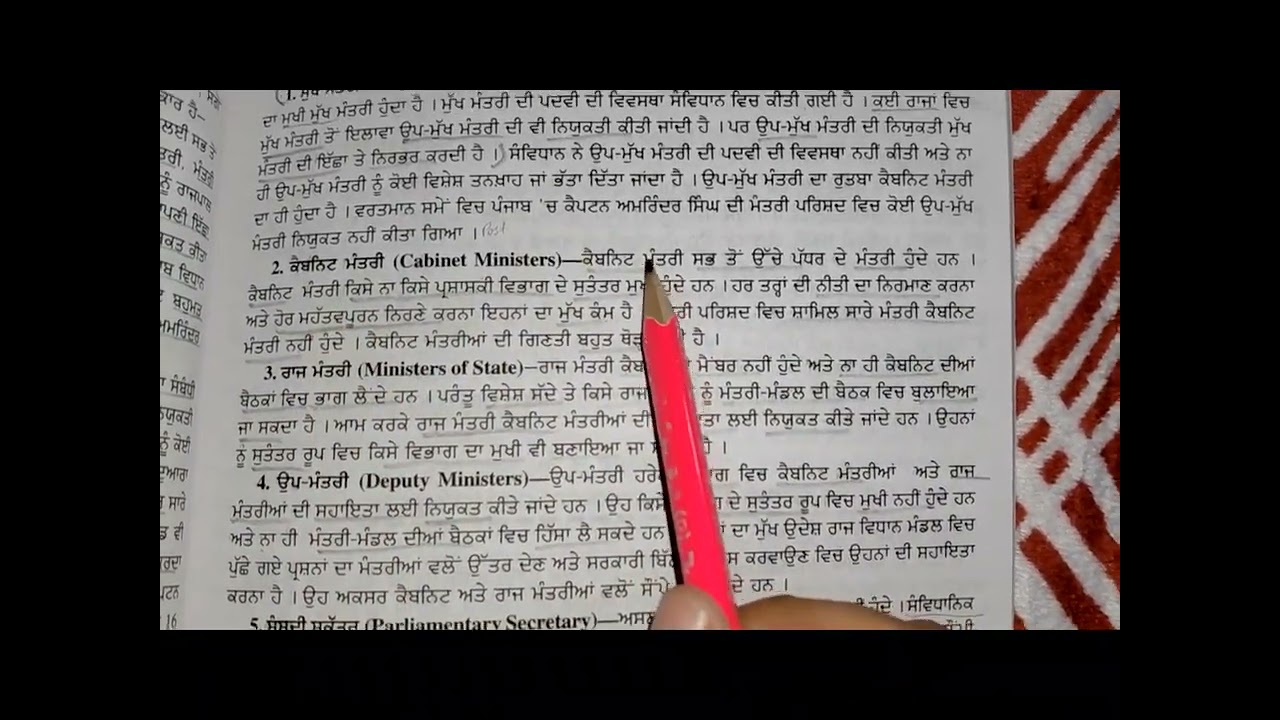 ਦਾ ਮੁਖੀ ਮੁੱਖ ਮੰਤਰੀ ਹੁੰਦਾ ਹੈ । ਮੁੱਖ ਮੰਤਰੀ ਦੀ ਪਦਵੀ ਦੀ ਵਿਵਸਥਾ ਸੰਵਿਧਾਨ ਵਿਚ ਕੀਤੀ ਗਈ ਹੈ । ਕਈ ਰਾਜਾਂ ਵਿਚ
ਮੁੱਖ ਮੰਤਰੀ ਤੋਂ ਇਲਾਵਾ ਉਪ-ਮੁੱਖ ਮੰਤਰੀ ਦੀ ਵੀ ਨਿਯੁਕਤੀ ਕੀਤੀ ਜਾਂਦੀ ਹੈ । ਪਰ ਉਪ-ਮੁੱਖ ਮੰਤਰੀ ਦੀ ਨਿਯੁਕਤੀ ਮੁੱਖ
ਮੰਤਰੀ ਦੀ ਇੱਛਾ ਤੇ ਨਿਰਭਰ ਕਰਦੀ ਹੈ । ਸੰਵਿਧਾਨ ਨੇ ਉਪ-ਮੁੱਖ ਮੰਤਰੀ ਦੀ ਪਦਵੀ ਦੀ ਵਿਵਸਥਾ ਨਹੀਂ ਕੀਤੀ ਅਤੇ ਨਾ
ਹੀ ਉਪ-ਮੁੱਖ ਮੰਤਰੀ ਨੂੰ ਕੋਈ ਵਿਸ਼ੇਸ਼ ਤਨਖ਼ਾਹ ਜਾਂ ਭੱਤਾ ਦਿੱਤਾ ਜਾਂਦਾ ਹੈ । ਉਪ-ਮੁੱਖ ਮੰਤਰੀ ਦਾ ਰੁਤਬਾ ਕੈਬਨਿਟ ਮੰਤਰੀ
ਦਾ ਹੀ ਹੁੰਦਾ ਹੈ । ਵਰਤਮਾਨ ਸਮੇਂ ਵਿਚ ਪੰਜਾਬ 'ਚ ਕੈਪਟਨ ਅਮਰਿੰਦਰ ਸਿੰਘ ਦੀ ਮੰਤਰੀ ਪਰਿਸ਼ਦ ਵਿਚ ਕੋਈ ਉਪ-ਮੁੱਖ
ਮੰਤਰੀ ਨਿਯੁਕਤ ਨਹੀਂ ਕੀਤਾ ਗਿਆ । Post
2. ਕੈਬਨਿਟ ਮੰਤਰੀ (Cabinet Ministers)—ਕੈਬਨਿਟ ਮੰਤਰੀ ਸਭ ਤੋਂ ਉੱਚੇ ਪੱਧਰ ਦੇ ਮੰਤਰੀ ਹੁੰਦੇ ਹਨ ।
ਕੈਬਨਿਟ ਮੰਤਰੀ ਕਿਸੇ ਨਾ ਕਿਸੇ ਪ੍ਰਸ਼ਾਸਕੀ ਵਿਭਾਗ ਦੇ ਸੁਤੰਤਰ ਹੁੰਦੇ ਹਨ । ਹਰ ਤਰ੍ਹਾਂ ਦੀ ਨੀਤੀ ਦਾ ਨਿਰਮਾਣ ਕਰਨਾ
ਅਤੇ ਹੋਰ ਮਹੱਤਵਪੂਰਨ ਨਿਰਣੇ ਕਰਨਾ ਇਹਨਾਂ ਦਾ ਮੁੱਖ ਕੰਮ ਹੈ ਪਰਿਸ਼ਦ ਵਿਚ ਸ਼ਾਮਿਲ ਸਾਰੇ ਮੰਤਰੀ ਕੈਬਨਿਟ
ਮੰਤਰੀ ਨਹੀਂ ਹੁੰਦੇ । ਕੈਬਨਿਟ ਮੰਤਰੀਆਂ ਦੀ ਗਿਣਤੀ ਬਹੁਤ ਹੈ ।
3. ਰਾਜ ਮੰਤਰੀ (Ministers of State)—ਰਾਜ ਮੰਤਰੀ ਮੈਂਬਰ ਨਹੀਂ ਹੁੰਦੇ ਅਤੇ ਨਾ ਹੀ ਕੈਬਨਿਟ ਦੀਆਂ
ਬੈਠਕਾਂ ਵਿਚ ਭਾਗ ਲੈਂਦੇ ਹਨ । ਪਰੰਤੂ ਵਿਸ਼ੇਸ਼ ਸੱਦੇ ਤੇ ਕਿਸੇ ਰਾਜ ਨੂੰ ਮੰਤਰੀ-ਮੰਡਲ ਦੀ ਬੈਠਕ ਵਿਚ ਬੁਲਾਇਆ
ਜਾ ਸਕਦਾ ਹੈ । ਆਮ ਕਰਕੇ ਰਾਜ ਮੰਤਰੀ ਕੈਬਨਿਟ ਮੰਤਰੀਆਂ ਦੀ ਲਈ ਨਿਯੁਕਤ ਕੀਤੇ ਜਾਂਦੇ ਹਨ । ਉਹਨਾਂ
ਨੂੰ ਸੁਤੰਤਰ ਰੂਪ ਵਿਚ ਕਿਸੇ ਵਿਭਾਗ ਦਾ ਮੁਖੀ ਵੀ ਬਣਾਇਆ ਜਾ ਹੈ ।
4. ਉਪ-ਮੰਤਰੀ (Deputy Ministers)—ਉਪ-ਮੰਤਰੀ ਵਿਚ ਕੈਬਨਿਟ ਮੰਤਰੀਆਂ ਅਤੇ ਰਾਜ
ਮੰਤਰੀਆਂ ਦੀ ਸਹਾਇਤਾ ਲਈ ਨਿਯੁਕਤ ਕੀਤੇ ਜਾਂਦੇ ਹਨ । ਉਹ ਦੇ ਸੁਤੰਤਰ ਰੂਪ ਵਿਚ ਮੁਖੀ ਨਹੀਂ ਹੁੰਦੇ ਹਨ
ਅਤੇ ਨਾ ਹੀ ਮੰਤਰੀ-ਮੰਡਲ ਦੀਆਂ ਬੈਠਕਾਂ ਵਿਚ ਹਿੱਸਾ ਲੈ ਸਕਦੇ ਹਨ ਦਾ ਮੁੱਖ ਉਦੇਸ਼ ਰਾਜ ਵਿਧਾਨ ਮੰਡਲ ਵਿਚ
ਪੁੱਛੇ ਗਏ ਪ੍ਰਸ਼ਨਾਂ ਦਾ ਮੰਤਰੀਆਂ ਵਲੋਂ ਉੱਤਰ ਦੇਣ ਅਤੇ ਸਰਕਾਰੀ ਕਰਵਾਉਣ ਵਿਚ ਉਹਨਾਂ ਦੀ ਸਹਾਇਤਾ
ਕਰਨਾ ਹੈ । ਉਹ ਅਕਸਰ ਕੈਬਨਿਟ ਅਤੇ ਰਾਜ ਮੰਤਰੀਆਂ ਵਲੋਂ ਹਨ ।
5. ਸੰਸਦੀ ਸਕੱਤਰ (Parliamentary Secretary)— ਹੁੰਦੇ । ਸੰਵਿਧਾਨਿਕ